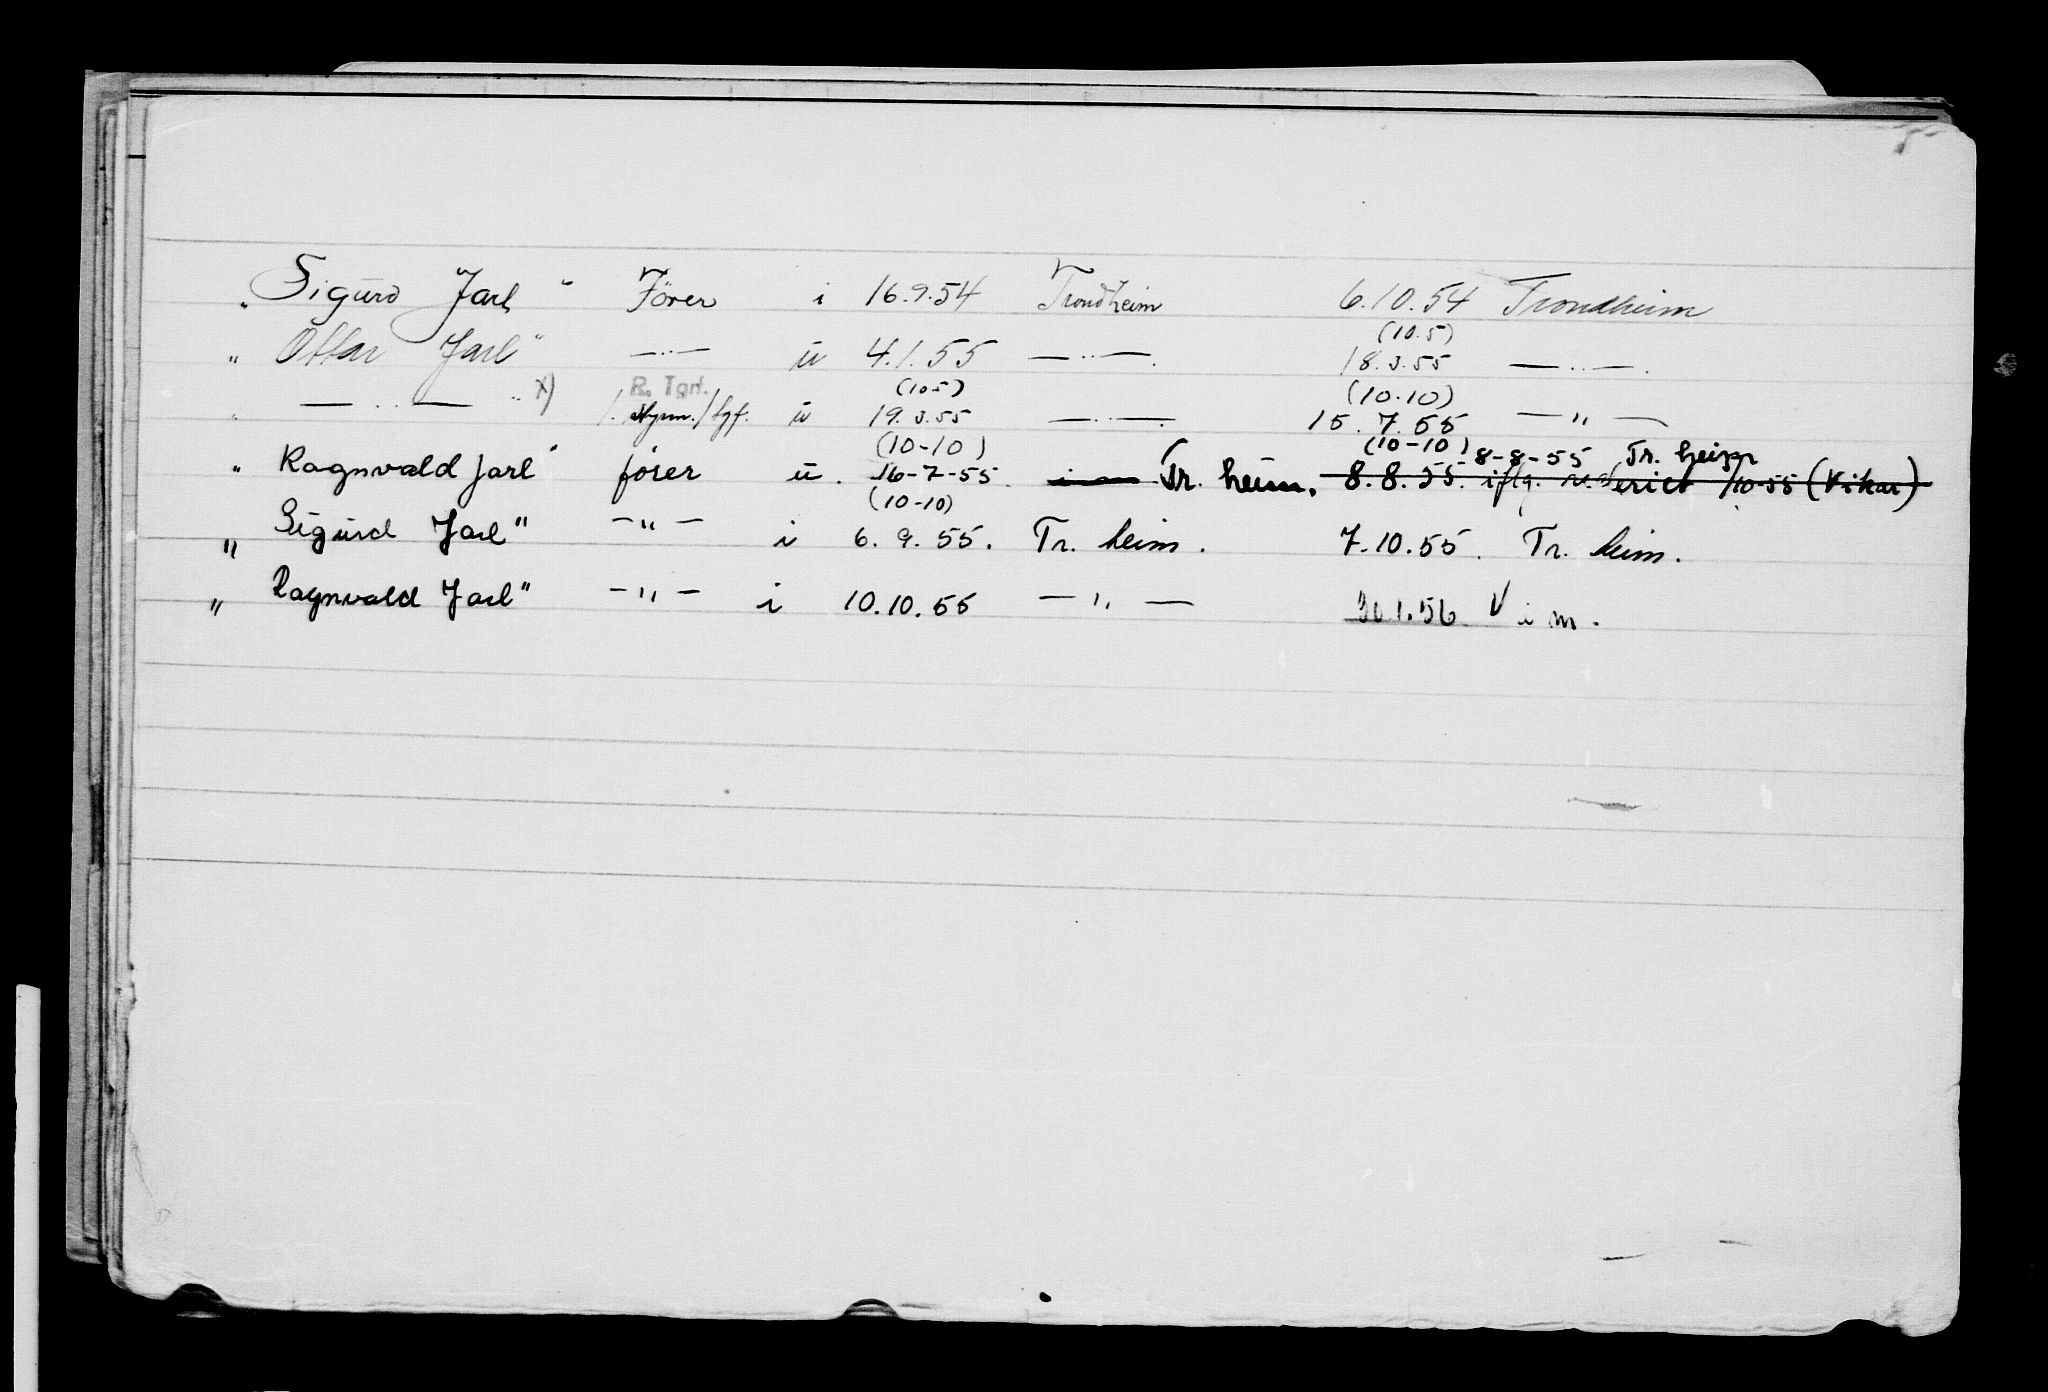 „ Sigurd Jarl " Förer i 16.9.54 Trondheim 6.10.54 Trondheim
(10.5)
„ Ottar Jarl " —..— u 4.1.55 —..—. 18.3.55 —..—.
R. Tgrf. (10.5) (10.10)
" — .. — " x) 1. Styrm./tgf. u 19.3.55 —..— 15.7.55 — " —
(10-10) (10-10) 8-8-55 Tr. heim
" Ragnvald Jarl " förer u. 16-7-55. Tr. heim. 8.8.55. iflg. rederiet /10-55 (Vikar)
(10-10)
„ Sigurd Jarl " — " — i 6. 9. 55. Tr. heim. 7.10.55. Tr. heim.
„ Ragnvald Jarl " — " — i 10.10.55 — " — 30.1.56 V i m.